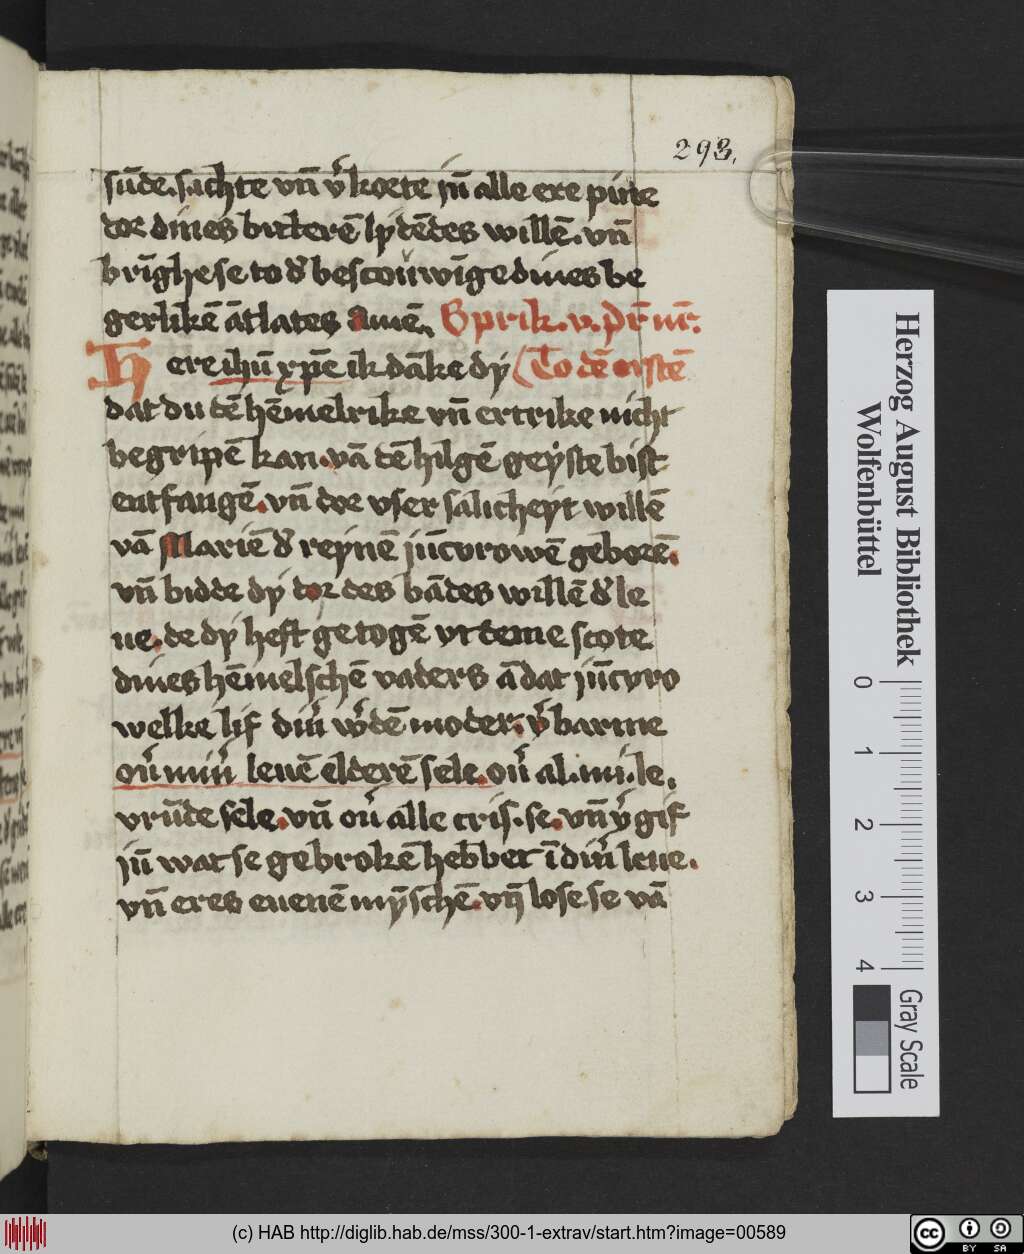 293.
sūde. sachte vn̄ v᷑koete jn̄ alle ere pine
dor dines bitterē lydēdes willē. vn̄
brīghe se to d᷑ bescouwīge dines be
gerlikē ātlates amē. Sprik. v. pr̄ nr̄.
Here ihū xp̄e ik dāke dy (To dē ersten̄
dat du dē hēmelrike vn̄ ertrike nicht
begripē kan. vā dē hilgē geyste bist
entfangē. vn̄ dor vser salicheyt willē
vā Mariē d᷑ reynē jūcvrowē geborē.
vn̄ bidde dy dor des bādes willē d᷑ le
ue. de dy heft getogē vt deme scote
dines hēmelschē vaders ā dat jūcvro
welke lif din᷑ w᷑dē moder. v᷑barme
ou᷑ min᷑ leuē elderē sele. ou᷑ al. mi. le.
vrūde sele. vn̄ ou᷑ alle cris. se. vn̄ v᷑gif
jn̄ wat se gebrokē hebbet ī din᷑ leue.
vn̄ eres euenē mȳschē. vn̄ lose se vā
Herzog August Bibliothek
Wolfenbüttel
0 1 2 3 4
Gray Scale
(c) HAB http://diglib.hab.de/mss/300-1-extrav/start.htm?image=00589
cc BY SA